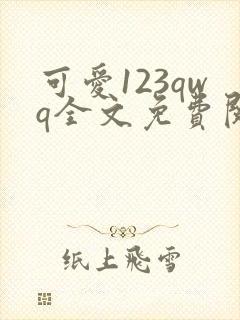 可愛123qw
q全文免費閱
纸上飛雪